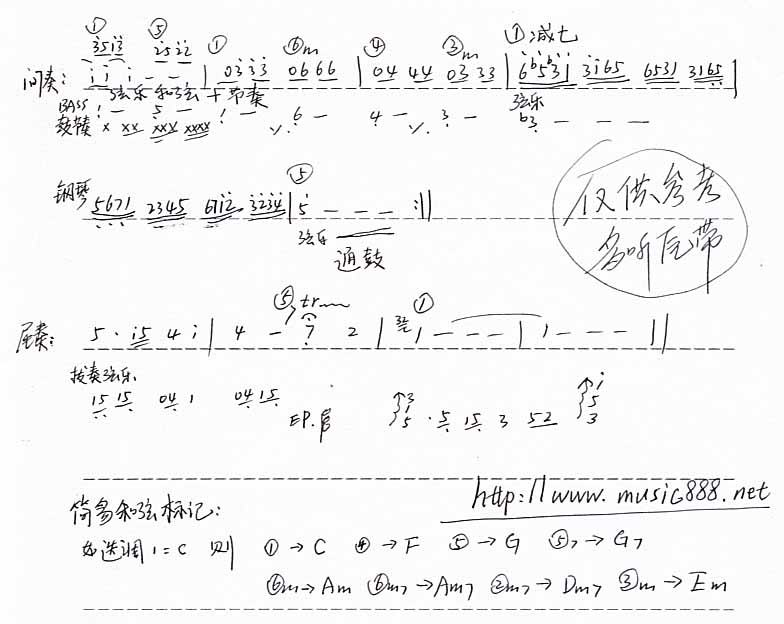 ① ⑤ ① ⑥m ④ ③m ①减七
3513 2512
间奏: i i i - - | 0333 0666 | 04 44 03 33 | 6b5b31 3165 6531 3165 |
弦乐和弦+节奏 弦乐
BASS 1 - 5 - 1 - 6 - 4 - 3 - b3 - - -
鼓 x xx xxx xxxx
⑤
钢琴 5671 2345 6712 3234 | 5 - - - :||
弦乐
通鼓
仅供参考
多听原带
⑤7 tr ①
尾奏: 5 · i5 4 i | 4 - 7 2 | 1 - - - | 1 - - - ||
拨奏弦乐
15 15 04 1 04 15 EP. 5 · 5 15 3 52
简易和弦标记:
http://www.music888.net
如选调1=C 则 ①→C ④→F ⑤→G ⑤7→G7
⑥m→Am ⑥m7→Am7 ②m7→Dm7 ③m→Em